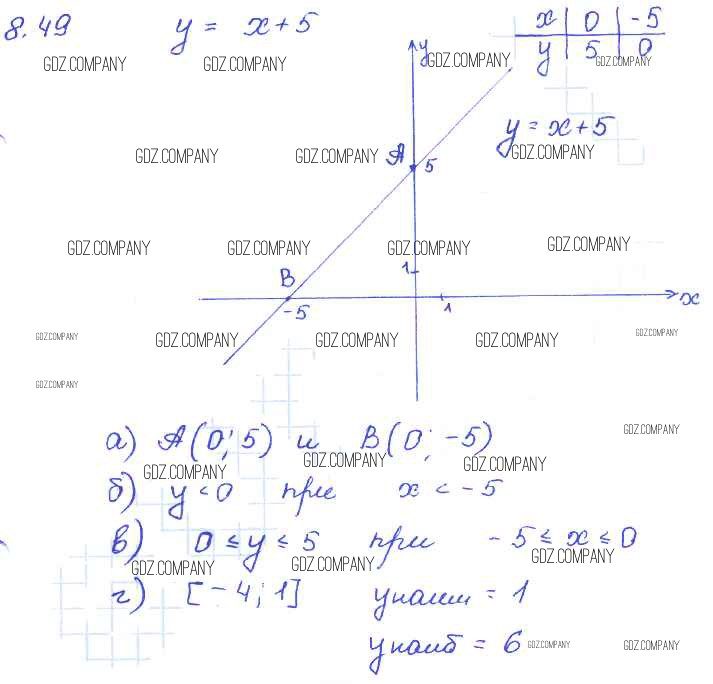 8.49 y = x + 5
x | 0 | -5
y | 5 | 0
GDZ.COMPANY GDZ.COMPANY GDZ.COMPANY GDZ.COMPANY
y
y = x + 5
GDZ.COMPANY GDZ.COMPANY GDZ.COMPANY
A 5
GDZ.COMPANY GDZ.COMPANY GDZ.COMPANY GDZ.COMPANY
1
B
-5 1 x
GDZ.COMPANY GDZ.COMPANY GDZ.COMPANY GDZ.COMPANY GDZ.COMPANY
GDZ.COMPANY
а) A(0; 5) и B(0; -5)
GDZ.COMPANY
GDZ.COMPANY GDZ.COMPANY GDZ.COMPANY
б) y < 0 при x < -5
в) 0 ≤ y ≤ 5 при -5 ≤ x ≤ 0
GDZ.COMPANY GDZ.COMPANY GDZ.COMPANY
г) [-4; 1] yнаим = 1
yнаиб = 6
GDZ.COMPANY GDZ.COMPANY